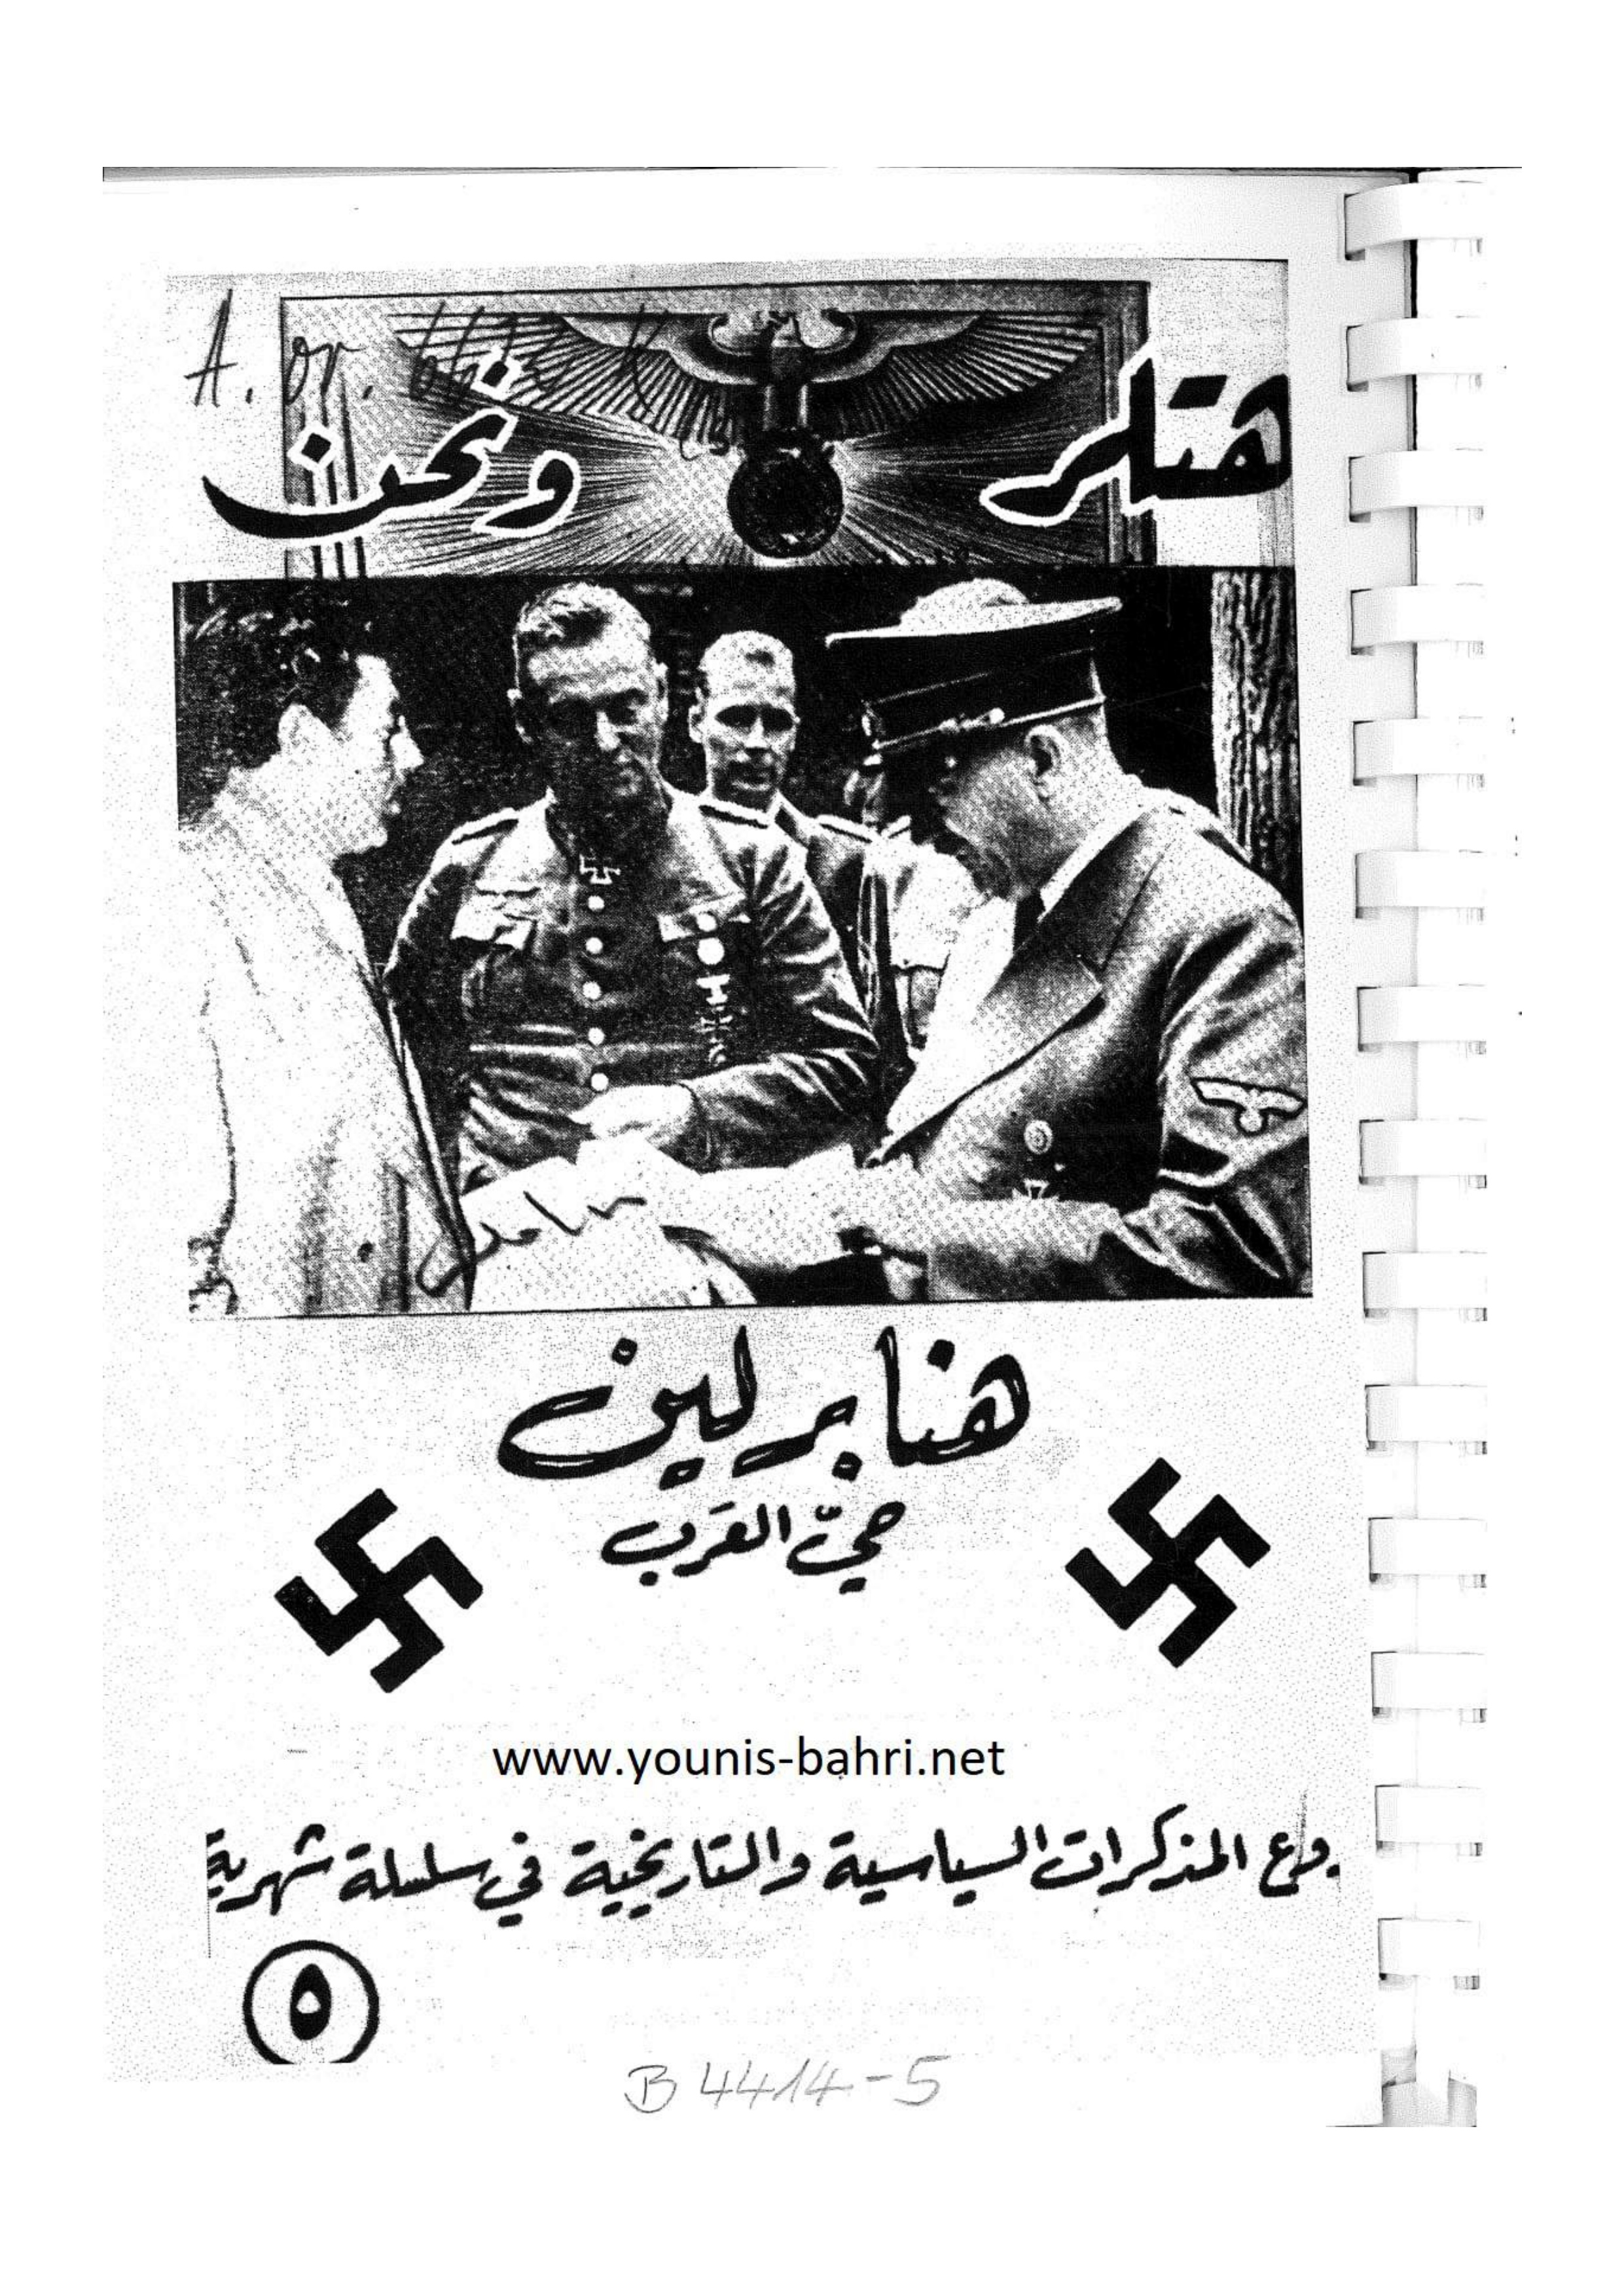 A. or.
هتلر ونحن
هنا برلين
حيّ العرب
www.younis-bahri.net
المذكرات السياسية والتاريخية في سلسلة شهرية
٥
B 4414-5